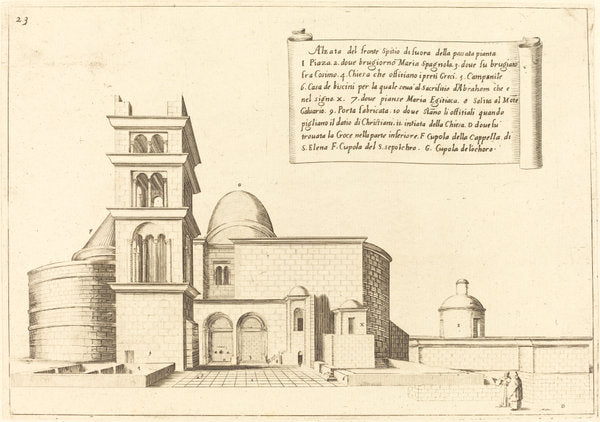 23
Alzata del fronte Spitio di fuora della passata pianta
1 Piaza. 2. doue brugiorno Maria Spagnola. 3. doue fu brugiato
fra Cosimo. 4. Chiesa che offitiano i preti Greci. 5. Campanile
6. Casa de biscini per la quale si ua al Sacrifitio d'Abraham che e
nel signo x. 7. doue pianse Maria Egitiaca. 8 Salita al Mote
Caluario. 9. Porta fabricata. 10 doue stano li offitiali quando
pigliano il datio di Christiani. 11. intrata della Chiesa. D doue fu
trouata la Croce nella parte inferiore. F Cupola della Cappella. di
S. Elena F. Cupola del S. sepolchro. G. Cupola del choro.